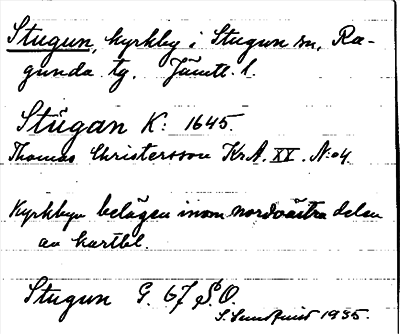 Stugun, kyrkby i Stugun sn, Ra-
gunda tg. Jämtl. l.
Stŭgan K: 1645.
Thomas Christersson KrA. XX. N:o 4
Kyrkbyn belägen inom nordvästra delen
av kartbl.
Stugun G. 67 S.O.
S. Sundquist 1935.